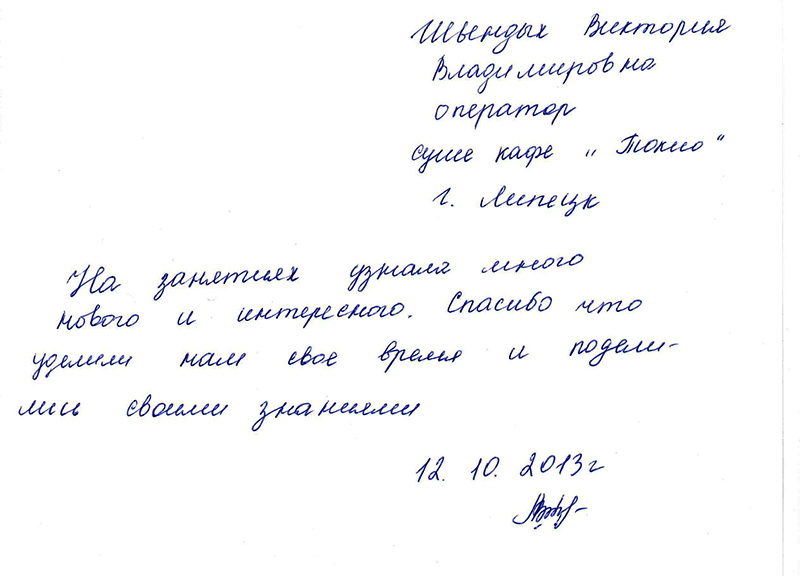 Шындых Виктория
Владимировна
оператор
суши кафе „Токио"
г. Липецк
На занятиях узнала много
нового и интересного. Спасибо что
уделили нам свое время и подели-
лись своими знаниями
12. 10. 2013 г